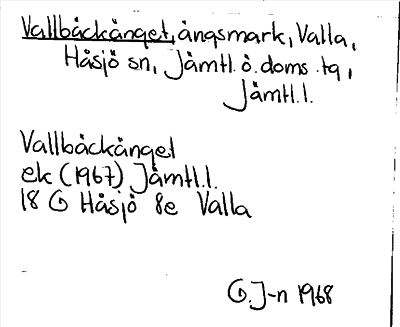 Vallbäckänget, ängsmark, Valla,
Håsjö sn, Jämtl. ö. doms. tg,
Jämtl. l.
Vallbäckänget
ek (1967) Jämtl. l.
18 G Håsjö 8e Valla
G. J-n 1968